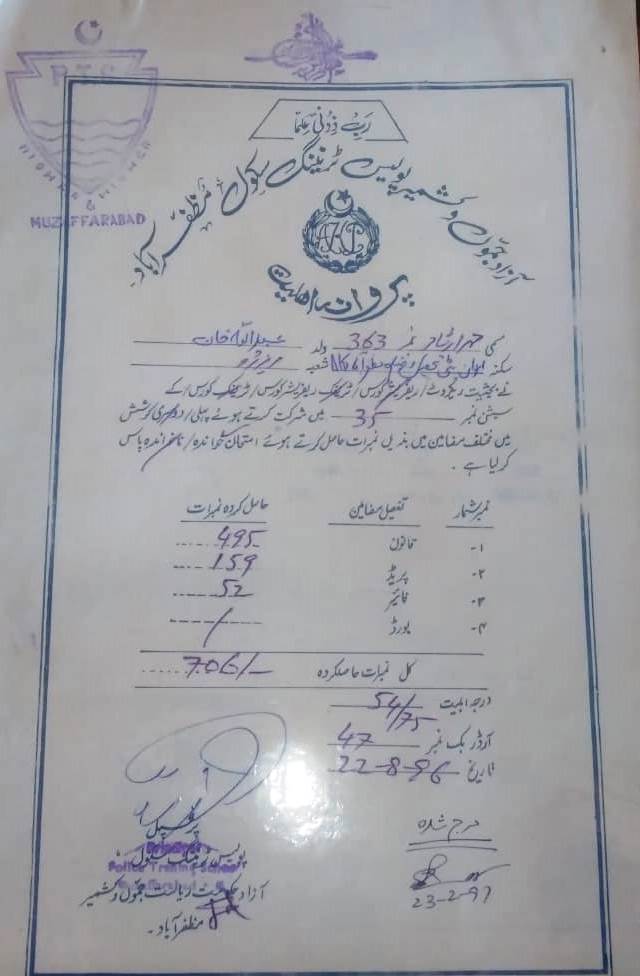 P.T.S
HIGHER & HIGHER
MUZAFFARABAD
رَبِّ زِدْنِی عِلْمًا
آزاد جموں و کشمیر پولیس ٹریننگ سکول مظفر آباد
پروانہ اہلیت
نمبر 363 ولد عبداللہ خان
سکنہ
نے بحیثیت ریکروٹ / ریفریشر کورس / ٹریفک ریفریشر کورس / ٹریفک کورس / کے
سیشن نمبر 35 میں شرکت کرتے ہوئے پہلی / دوسری کوشش
میں مختلف مضامین میں بذیل نمبرات حاصل کرتے ہوئے امتحان خواندہ / ناخواندہ پاس
کر لیا ہے ۔
نمبر شمار تفصیل مضامین حاصل کردہ نمبرات
۱- قانون 495
۲- پریڈ 159
۳- فائر 52
۴- بورڈ /
کل نمبرات حاصلکردہ 706/-
درجہ اہلیت 54/75
آرڈر بک نمبر 47
تاریخ 22-8-96
درج شدہ
23-2-97
پرنسپل
پولیس ٹریننگ سکول
Principal
Police Training School
آزاد حکومت ریاست جموں و کشمیر
مظفر آباد ۔